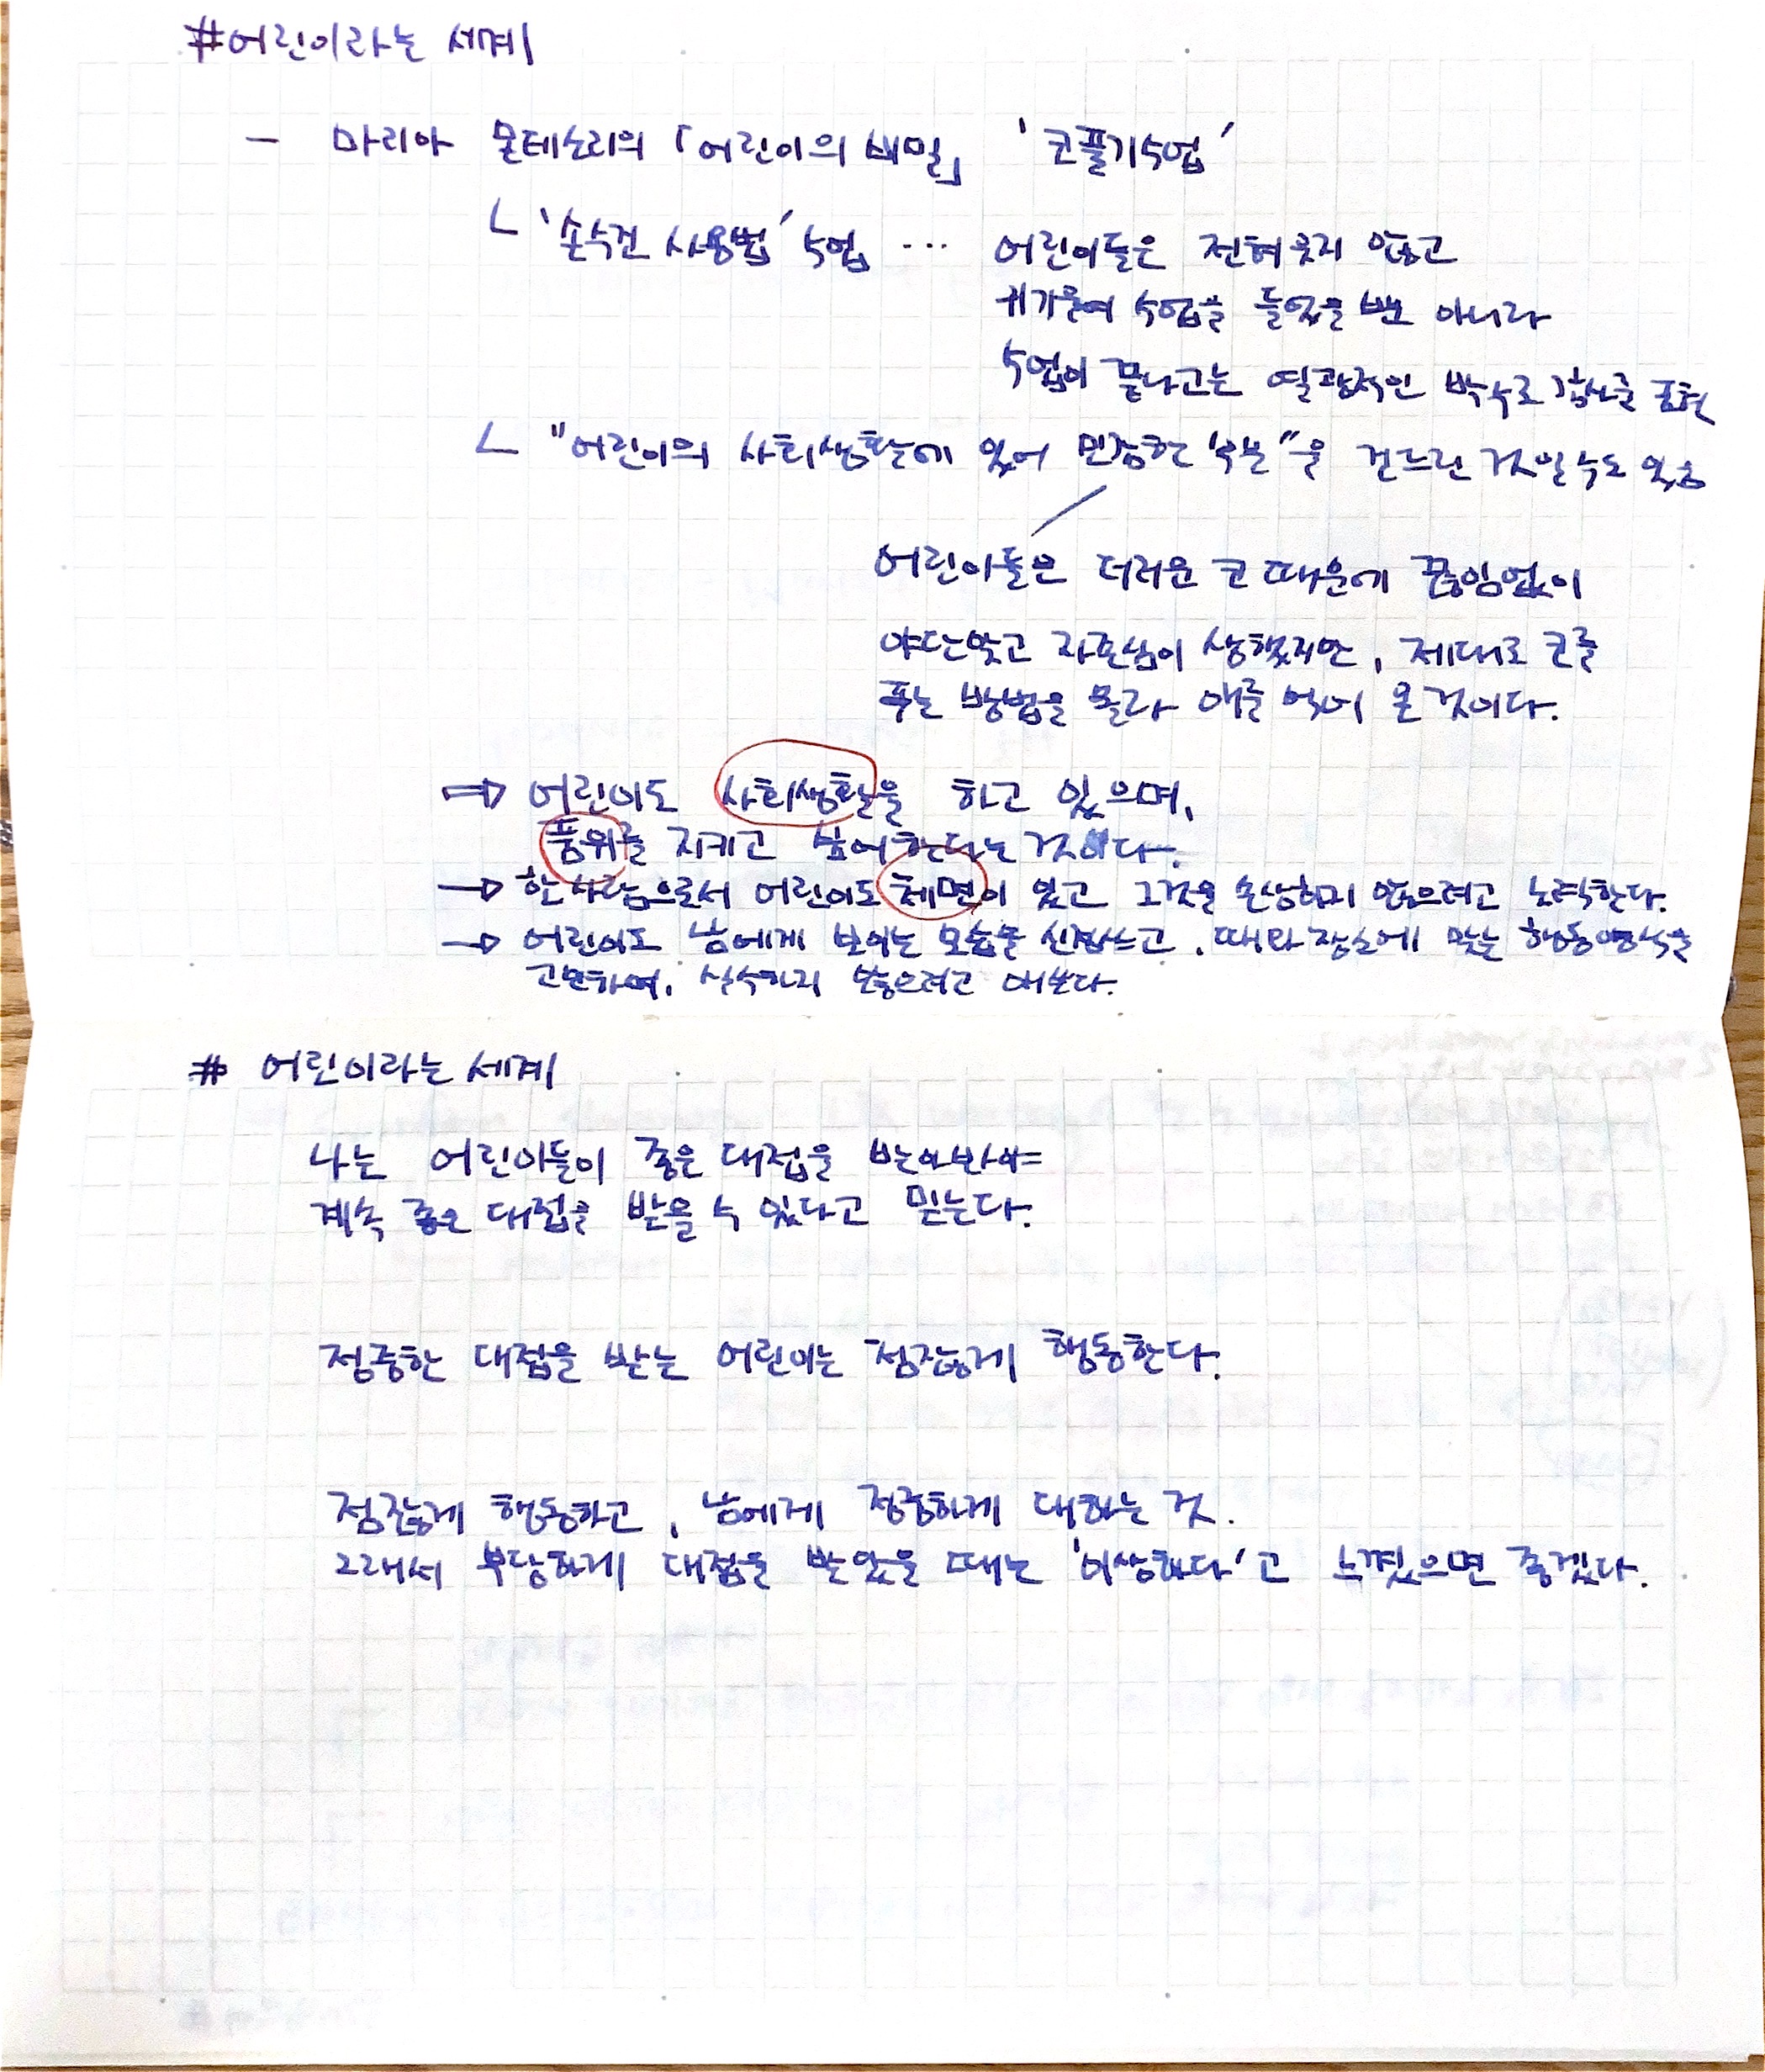 #어린이라는 세계
- 마리아 몬테소리의 「어린이의 비밀」 '코풀기수업'
ㄴ '손수건 사용법' 수업 ... 어린이들은 전혀 웃지 않고
귀기울여 수업을 들었을 뿐 아니라
수업이 끝나고는 열광적인 박수로 감사를 표현
ㄴ "어린이의 사회생활에 있어 민감한 부분"을 건드린 것일 수도 있음
어린이들은 더러운 코 때문에 끊임없이
야단맞고 자존심이 상했지만, 제대로 코를
푸는 방법을 몰라 애를 먹어 온 것이다.
⇒ 어린이도 사회생활을 하고 있으며,
품위를 지키고 싶어한다는 것이다.
→ 한 사람으로서 어린이도 체면이 있고 그것을 손상하지 않으려고 노력한다.
→ 어린이도 남에게 보이는 모습을 신경쓰고, 때와 장소에 맞는 행동양식을
고민하며, 실수하지 않으려고 애쓴다.
# 어린이라는 세계
나는 어린이들이 좋은 대접을 받아봐야
계속 좋은 대접을 받을 수 있다고 믿는다.
정중한 대접을 받는 어린이는 점잖게 행동한다.
점잖게 행동하고, 남에게 정중하게 대하는 것.
그래서 부당하게 대접을 받았을 때는 '이상하다'고 느꼈으면 좋겠다.